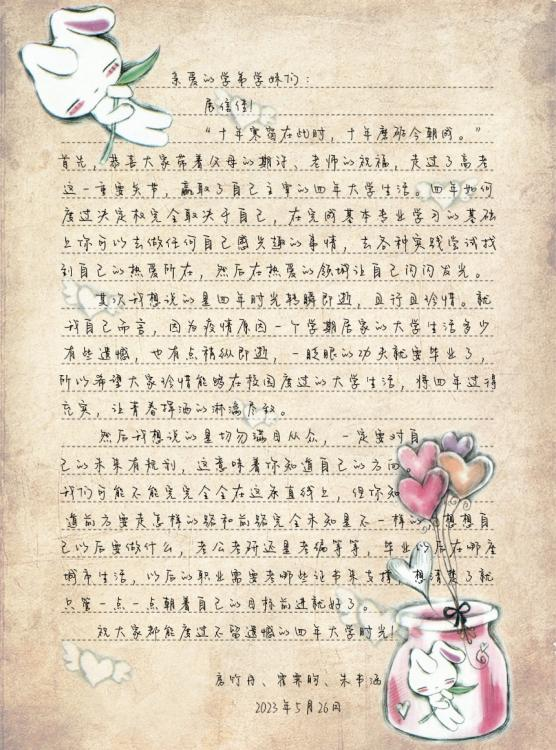 亲爱的学弟学妹们：
展信佳！
“十年寒窗在此时，十年磨砺今朝阅。”
首先，恭喜大家带着父母的期许、老师的祝福，走过了高考
这一重要关节，赢取了自己主宰的四年大学生活。四年如何
度过决定权完全取决于自己，在完成基本专业学习的基础
上你可以去做任何自己感兴趣的事情，去各种实践尝试找
到自己的热爱所在，然后在热爱的领域让自己闪闪发光。
其次我想说的是四年时光转瞬即逝，且行且珍惜。就
我自己而言，因为疫情原因一个学期居家的大学生活多少
有些遗憾，也有点稍纵即逝，一眨眼的功夫就要毕业了，
所以希望大家珍惜能够在校园度过的大学生活，将四年过得
充实，让青春挥洒的淋漓尽致。
然后我想说的是切勿满目从众，一定要对自
己的未来有规划，这意味着你知道自己的方向。
我们可能不能完完全全在这条直线上，但你知
道前方要走怎样的路和前路完全未知是不一样的。想想自
己以后要做什么，考公考研还是考编等等，毕业以后在哪座
城市生活，以后的职业需要考哪些证书来支撑，想清楚了就
只管一点一点朝着自己的目标前进就好了。
祝大家都能度过不留遗憾的四年大学时光！
房竹丹、霍寒昀、朱书涵
2023年5月26日